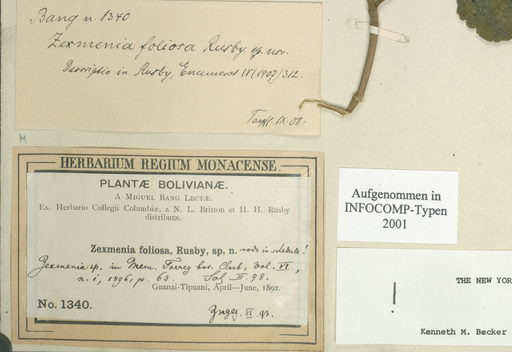 Bang n. 1340
Zexmenia foliosa Rusby sp. nov.
Descriptio in Rusby, Enumerat IV (1907) 312.
IX-08.
M
HERBARIUM REGIUM MONACENSE.
PLANTÆ BOLIVIANÆ.
A MIGUEL BANG LECTÆ.
Ex. Herbario Collegii Columbiæ, a N. L. Britton et H. H. Rusby
distributæ.
Zexmenia foliosa, Rusby, sp. n.
Zexmenia sp. in Mem. Torrey bot. Club, Vol. VI,
n. 1, 1896, p. 63
Guanai-Tipuani, April—June, 1892.
No. 1340.
VI. 93.
Aufgenommen in
INFOCOMP-Typen
2001
THE NEW YOR
Kenneth M. Becker